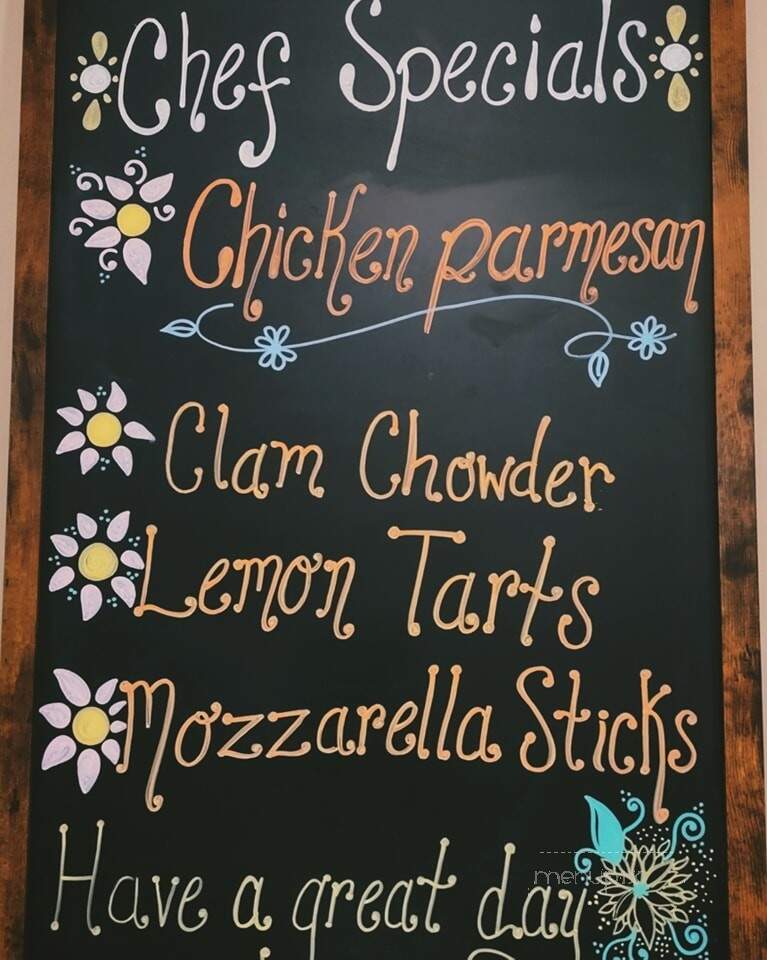 Chef Specials
Chicken parmesan
Clam Chowder
Lemon Tarts
Mozzarella Sticks
Have a great day